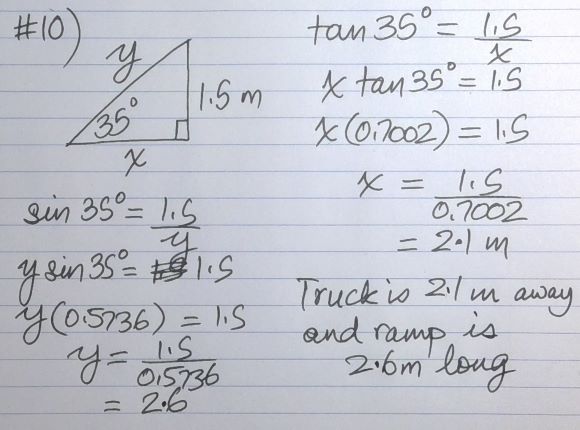 #10)
y
1.5 m
35°
x
sin 35° = 1.5/y
y sin 35° = 1.5
y(0.5736) = 1.5
y = 1.5/0.5736
= 2.6
tan 35° = 1.5/x
x tan 35° = 1.5
x(0.7002) = 1.5
x = 1.5/0.7002
= 2.1 m
Truck is 2.1 m away
and ramp is
2.6m long